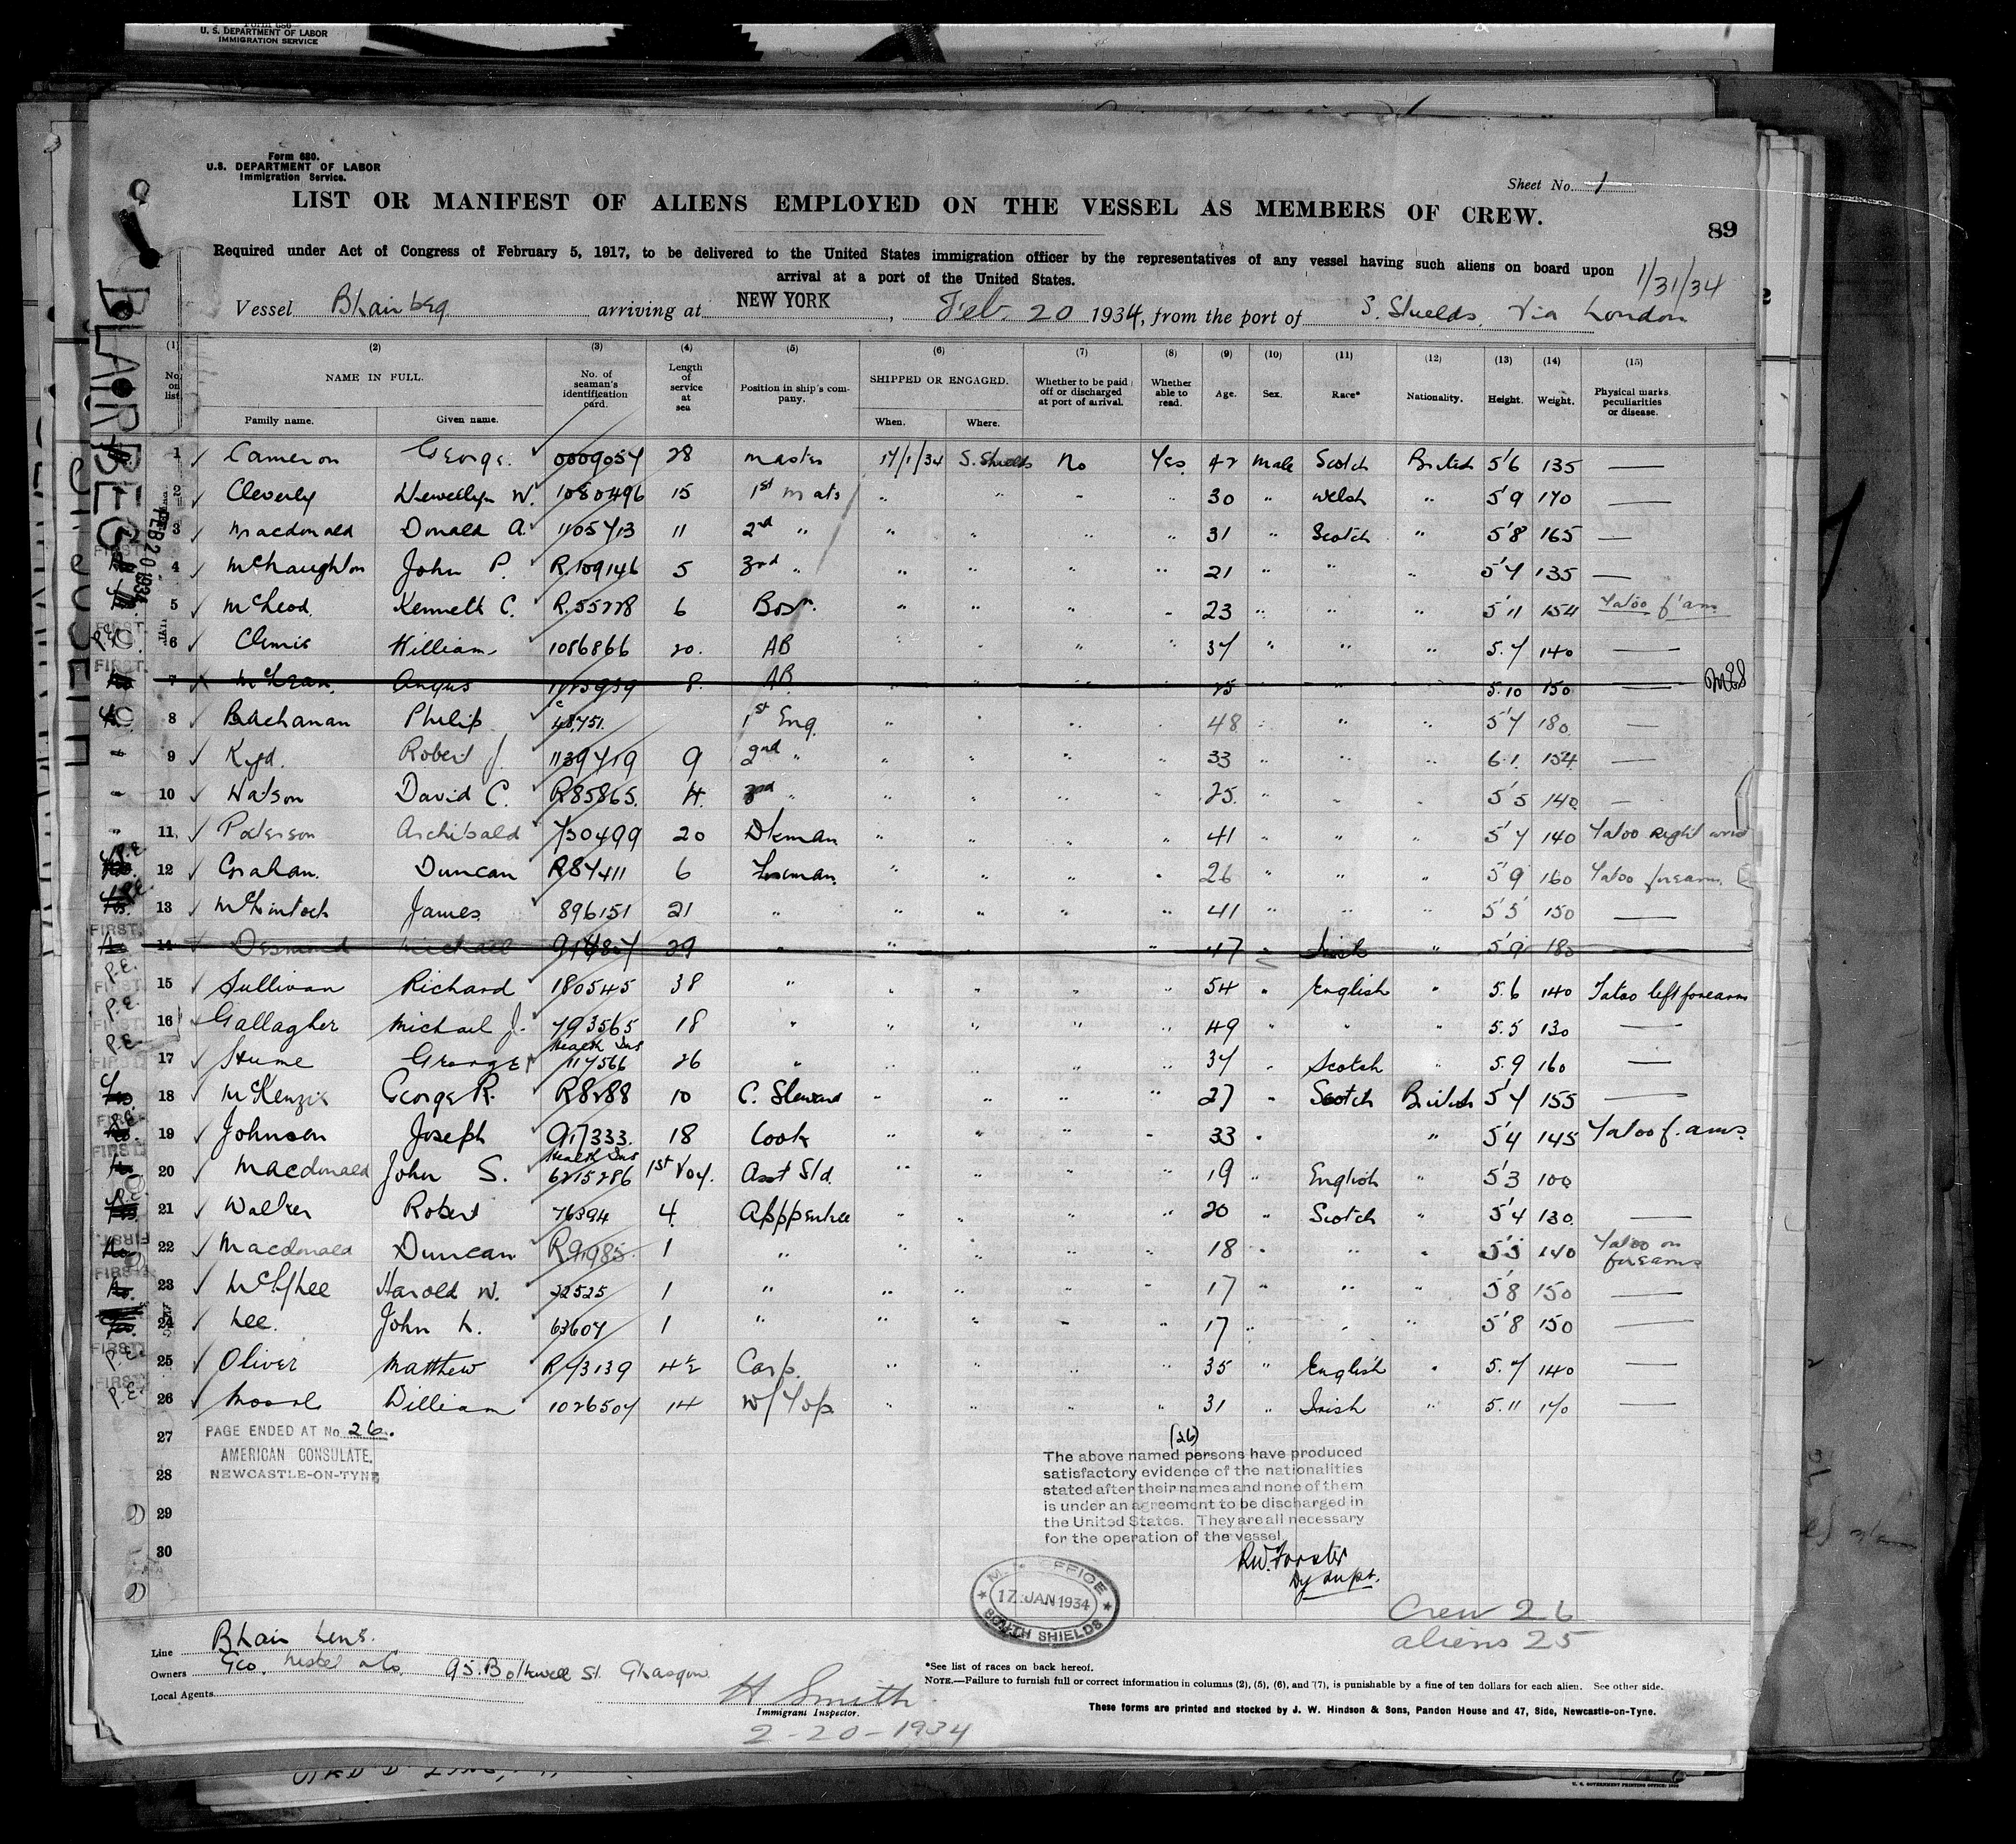 U. S. DEPARTMENT OF LABOR
IMMIGRATION SERVICE
Form 680.
U.S. DEPARTMENT OF LABOR
Immigration Service.
Sheet No. 1
LIST OR MANIFEST OF ALIENS EMPLOYED ON THE VESSEL AS MEMBERS OF CREW.
89
Required under Act of Congress of February 5, 1917, to be delivered to the United States immigration officer by the representatives of any vessel having such aliens on board upon
arrival at a port of the United States.
1/31/34
Vessel Blairbeg arriving at NEW YORK, Feb. 20 1934, from the port of S. Shields, Via London
BLAIRBEG
FEB 20 1934
(1) (2) (3) (4) (5) (6) (7) (8) (9) (10) (11) (12) (13) (14) (15)
No. on list. NAME IN FULL. Family name. Given name. No. of seaman's identification card. Length of service at sea Position in ship's company. SHIPPED OR ENGAGED. When. Where. Whether to be paid off or discharged at port of arrival. Whether able to read. Age. Sex. Race* Nationality. Height. Weight. Physical marks, peculiarities or disease.
1 Cameron George. 0009054 28 Master 17/1/34 S. Shields No Yes. 42 Male Scotch British 5'6 135 —
2 Cleverly Llewellyn W. 1080496 15 1st Mate " " " " 30 " Welsh " 5'9 170 —
3 Macdonald Donald A. 1105713 11 2nd " " " " " 31 " Scotch " 5'8 165 —
4 McNaughton John P. R.109146 5 3rd " " " " " 21 " " " 5'7 135 —
5 McLeod. Kenneth C. R.55278 6 Bosn. " " " " 23 " " " 5'11 154 Tatoo f'arm
6 William 1086866 20. AB " " " " 37 " " " 5.7 140 —
7 McLean. Angus 8. AB " " " " 25 " " " 5.10 150 —
8 Buchanan Philip 48751. 1st Eng. " " " " 48 " " " 5'7 180 —
9 Kyd. Robert J. 1139719 9 2nd " " " " " 33 " " " 6.1. 154 —
10 Watson David C. R85865. 4. 3rd " " " " " 25. " " " 5'5 140 —
11 Paterson Archibald 730499 20 Dkman " " " " 41 " " " 5'7 140 Tatoo Right
12 Graham. Duncan R87411 6 " " " " 26 " " " 5'9 160 Tatoo forearm.
13 McKintoch James 896151 21 " " " " " 41 " " " 5'5 150 —
14 Desmond Michael 29 " " " " 47 " Irish " 5'9 180 —
15 Sullivan Richard 180545 38 " " " " " 54 " English " 5.6 140 Tatoo left forearm
16 Gallagher Michael J. 793565 18 " " " " " 49 " " " 5.5 130 —
17 Hume George Health Ins 117566 26 " " " " " 37 " Scotch " 5.9 160 —
18 McKenzie George R. R8288 10 C. Steward " " " " 27 " Scotch British 5'7 155 —
19 Johnson Joseph 917333. 18 Cook " " " " 33 " " 5'4 145 Tatoo f. arms.
20 Macdonald John S. Health Ins 6215286 1st Voy. Asst Std. " " " " 19 " English " 5'3 100
21 Walker Robert 76394 4 Appprentice " " " " 20 " Scotch " 5'4 130. —
22 Macdonald Duncan R91985. 1 " " " " " 18 " " " 5'5 140 Tatoo on forearms
23 McPhee Harold W. 22525 1 " " " " " 17 " " " 5'8 150 —
24 Lee. John L. 63607 1 " " " " " 17 " " " 5'8 150 —
25 Oliver Matthew 4½ Carp. " " " " 35 " English " 5.7 140 —
26 Moore William 1026507 14 " " " " 31 " Irish " 5.11 170 —
27 PAGE ENDED AT No. 26.
AMERICAN CONSULATE,
NEWCASTLE-ON-TYNE
28
29
30
(26)
The above named persons have produced
satisfactory evidence of the nationalities
stated after their names and none of them
is under an agreement to be discharged in
the United States. They are all necessary
for the operation of the vessel
R.W. Forster
Dy Supt.
17 JAN 1934
SOUTH SHIELDS
Crew 26
aliens 25
Line Blair Line.
Owners Geo. Nisbet & Co. 95. Bothwell St. Glasgow.
Local Agents
H Smith
Immigrant Inspector.
2-20-1934
*See list of races on back hereof.
NOTE.—Failure to furnish full or correct information in columns (2), (5), (6), and (7), is punishable by a fine of ten dollars for each alien. See other side.
These forms are printed and stocked by J. W. Hindson & Sons, Pandon House and 47, Side, Newcastle-on-Tyne.